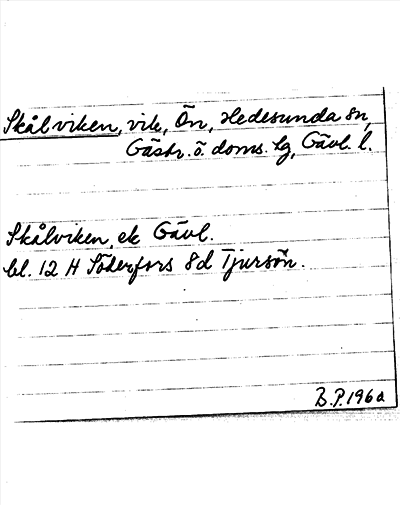 Skålviken, vik, Ön, Hedesunda sn,
Gästr. ö. doms. lg, Gävl. l.
Skålviken, ek Gävl.
bl. 12 H Söderfors 8d Tjursön.
B.P. 1960